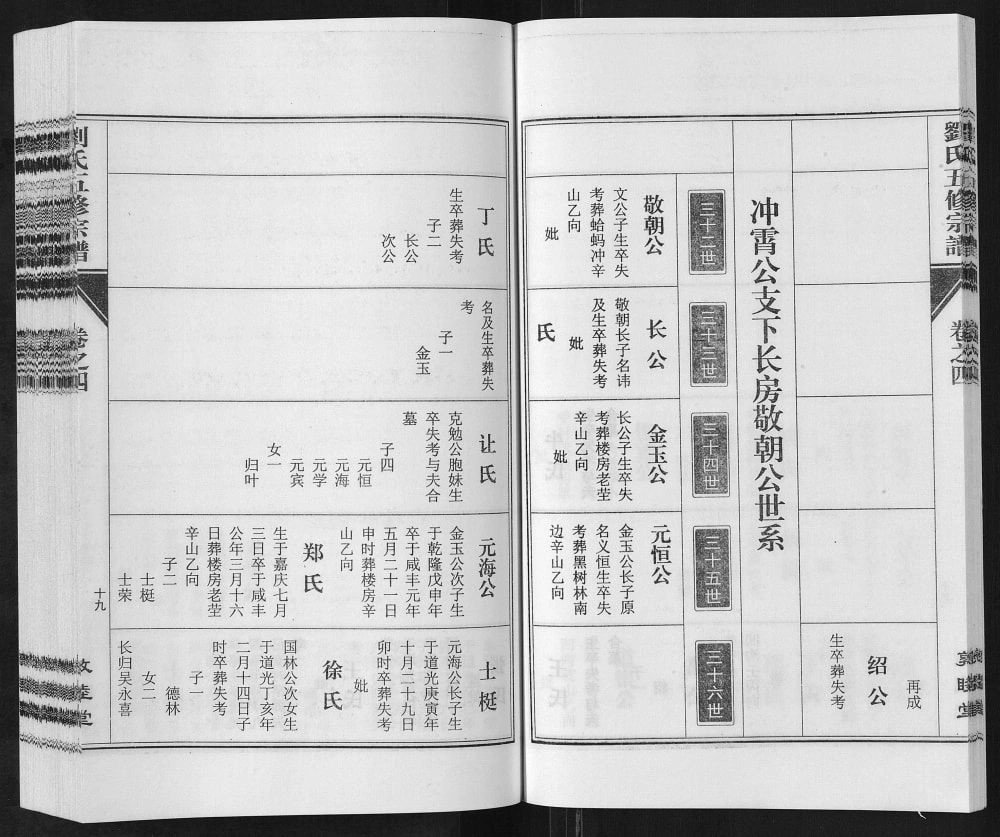 劉氏五修宗譜
卷之四
敦睦堂
再成
绍公
生卒葬失考
冲霄公支下长房敬朝公世系
三十二世
三十三世
三十四世
三十五世
三十六世
敬朝公
文公子生卒失
考葬蛤蚂冲辛
山乙向
妣
长公
敬朝长子名讳
及生卒葬失考
妣
氏
金玉公
长公子生卒失
考葬楼房老茔
辛山乙向
妣
元恒公
金玉公长子原
名义恒生卒失
考葬黑树林南
边辛山乙向
丁氏
生卒葬失考
子二
长公
次公
名及生卒葬失
考
子一
金玉
让氏
克勉公胞妹生
卒失考与夫合
墓
子四
元恒
元海
元学
元宾
女一
归叶
元海公
金玉公次子生
于乾隆戊申年
卒于咸丰元年
五月二十一日
申时葬楼房辛
山乙向
郑氏
生于嘉庆七月
三日卒于咸丰
公年三月十六
日葬楼房老茔
辛山乙向
子二
士梃
士荣
士梃
元海公长子生
于道光庚寅年
十月二十九日
卯时卒葬失考
妣
徐氏
国林公次女生
于道光丁亥年
二月十四日子
时卒葬失考
子一
德林
女二
长归吴永喜
十九
劉氏五修宗譜
卷之四
敦睦堂